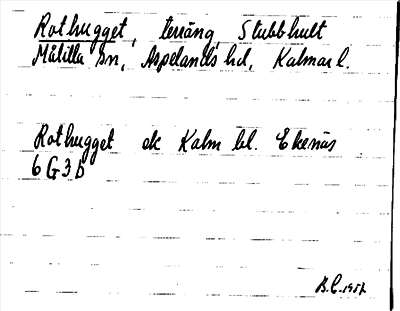 Rothugget, terräng, Stubbhult
Målilla sn, Aspelands hd, Kalmar l.
Rothugget ek Kalm bl. Ekenäs
6 G 3 b
B.C. 1957